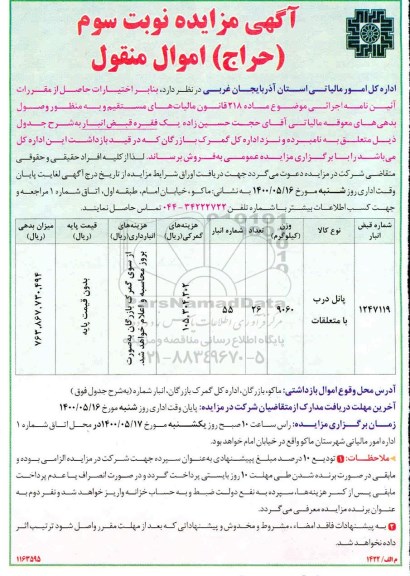 آگهی مزایده نوبت سوم
(حراج) اموال منقول
اداره کل امور مالیاتی استان آذربایجان غربی در نظر دارد، بنابر اختیارات حاصل از مقررات
آئین نامه اجرائی موضوع ماده ۲۱۸ قانون مالیات‌های مستقیم و به منظور وصول
بدهی‌های معوقه مالیاتی آقای حجت حسین زاده یک فقره قبض انبار به شرح جدول
ذیل متعلق به نامبرده و نزد اداره کل گمرک بازرگان که در قید بازداشت این اداره کل
می‌باشد را با برگزاری مزایده عمومی به فروش برساند. لذا از کلیه افراد حقیقی و حقوقی
متقاضی شرکت در مزایده دعوت می‌گردد جهت دریافت اوراق شرایط مزایده از تاریخ درج آگهی لغایت پایان
وقت اداری روز شنبه مورخ ۱۴۰۰/۰۵/۱۶ به نشانی: ماکو، خیابان امام، طبقه اول، اتاق شماره ۱ مراجعه و
جهت کسب اطلاعات بیشتر با شماره تلفن ۳۴۲۲۲۷۲۲-۰۴۴ تماس حاصل نمایند.
شماره قبض انبار | نوع کالا | وزن (کیلوگرم) | تعداد | شماره انبار | هزینه‌های گمرکی (ریال) | هزینه‌های انبارداری (ریال) | قیمت پایه (ریال) | میزان بدهی (ریال)
۱۲۴۷۱۱۹ | پانل درب با متعلقات | ۹۰۶۰ | ۲۶ | ۵۵ | ۱۰۵,۳۱۴,۳۰۲ | از سوی گمرک بازرگان به‌صورت بروز محاسبه و اعلام خواهد شد. | بدون قیمت پایه | ۷۶۳,۸۶۷,۷۳۰,۴۹۴
ParsNamadData
پایگاه اطلاع رسانی مناقصه و مزایده
۰۲۱-۸۸۳۴۹۶۷۰-۵
آدرس محل وقوع اموال بازداشتی: ماکو، بازرگان، اداره کل گمرک بازرگان، انبار شماره (به شرح جدول فوق)
آخرین مهلت دریافت مدارک از متقاضیان شرکت در مزایده: پایان وقت اداری روز شنبه مورخ ۱۴۰۰/۰۵/۱۶
زمان برگزاری مزایده: راس ساعت ۱۰ صبح روز یکشنبه مورخ ۱۴۰۰/۰۵/۱۷ در محل اتاق شماره ۱
اداره امور مالیاتی شهرستان ماکو واقع در خیابان امام خواهد بود.
ملاحظات: ۱ تودیع ۱۰ درصد مبلغ پیشنهادی به‌عنوان سپرده جهت شرکت در مزایده الزامی بوده و
مابقی در صورت برنده شدن طی مهلت ۱۰ روز بایستی پرداخت گردد و در صورت انصراف یا عدم پرداخت
مابقی پس از کسر هزینه‌ها، سپرده به نفع دولت ضبط و به حساب خزانه واریز خواهد شد و نفر دوم به
عنوان برنده مزایده معرفی می‌گردد.
۲ به پیشنهادات فاقد امضاء، مشروط و مخدوش و پیشنهاداتی که بعد از مهلت مقرر واصل شود ترتیب اثر
داده نخواهد شد.
م الف/ ۱۴۲۲
۱۱۶۳۵۹۵